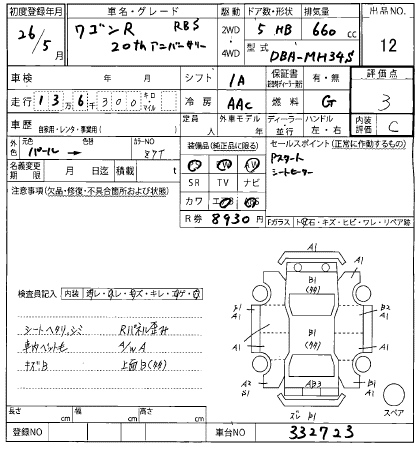 初度登録年月
車名・グレード
駆動 ドア数・形状 排気量
出品NO
26/5月
ワゴンR RBS
20thアニバーサリー
2WD
4WD
5 HB 660 cc
型式 DBA-MH34S
12
車検 年 月
シフト IA
保証書 有・無
評価点
走行 136300 キロ・マイル
冷房 AAC
燃料 G
3
車歴 自家用・レンタ・事業用( )
定員 人
外車モデル 年
ディーラー 並行
ハンドル 左・右
内装評価 C
外色 元色 パール → 色替
カラーNO
装備品(純正品に限る)
セールスポイント(正常に作動するもの)
Pスタート
シートヒーター
名義変更期限 月 日迄 積載 t
SR TV ナビ
注意事項(欠品・修復・不具合箇所および状態)
カワ
R券 8930 円
Fガラス
キズ・ヒビ・ワレ・リペア跡
検査員記入 内装
シートヘタリ、シミ
Rパネル歪み
車内ペット毛
A/WA
キズB
上面B(タホ)
A1
B1
A1
B1
B2
A1
A1
B1
A1
A2
B1
AB3
B1
A1
ズレ B1
スペア
長さ cm
幅 cm
高さ cm
登録NO
車台NO 332723